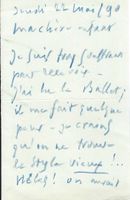 Jeudi 22 mai/90
ma chère enfant
Je suis trop souffrant
pour recevoir -
J'ai lu le Ballet ;
il me fait quelque
peur - je crains
qu'on ne trouve
le style vieux !..
Hélas ! on